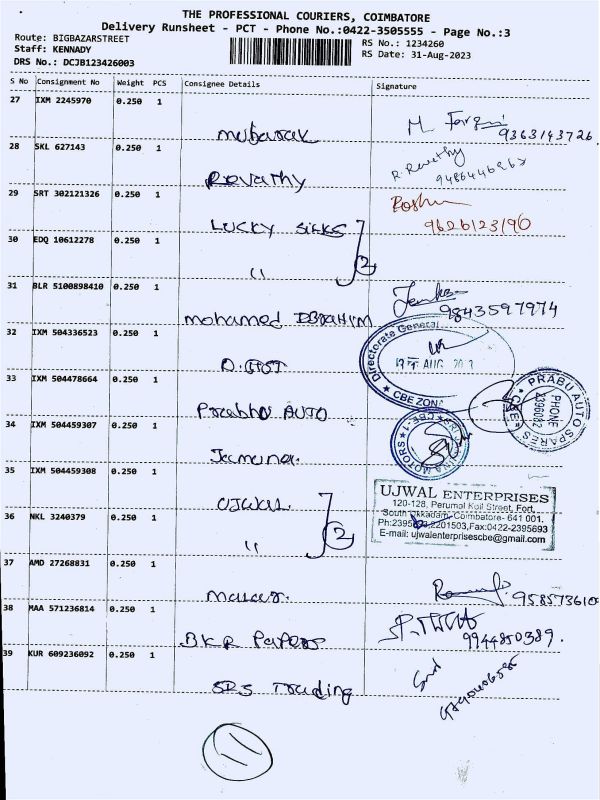 THE PROFESSIONAL COURIERS, COIMBATORE
Delivery Runsheet - PCT - Phone No.:0422-3505555 - Page No.:3
Route: BIGBAZARSTREET
Staff: KENNADY
DRS No.: DCJB123426003
RS No.: 1234260
RS Date: 31-Aug-2023
S No Consignment No Weight PCS Consignee Details Signature
27 IXM 2245970 0.250 1
mubarak 9363143726
28 SKL 627143 0.250 1
Revathy R. Revathy
29 SRT 302121326 0.250 1
LUCKY SILKS 9626123190
30 EDQ 10612278 0.250 1
" 2
31 BLR 5100898410 0.250 1
mohamed IBRAHIM 9843597974
32 IXM 504336523 0.250 1
Directorate General
AUG
CBE ZON
33 IXM 504478664 0.250 1
Prabhu AUTO
PRABU AUTO SPARES
PHONE
2396082
CBE
34 IXM 504459307 0.250 1
Jamuna
MOTORS
CBE-1
35 IXM 504459308 0.250 1
UJWAL
UJWAL ENTERPRISES
120-128, Perumal Koil Street, Fort,
South Ukkadam, Coimbatore- 641 001.
2201503,Fax:0422-2395693
E-mail: ujwalenterprisescbe@gmail.com
36 NKL 3240379 0.250 1
" 2
37 AMD 27268831 0.250 1
958573610
38 MAA 571236814 0.250 1
BKR PAPERS 9944850389.
39 KUR 609236092 0.250 1
SRS Trading
11